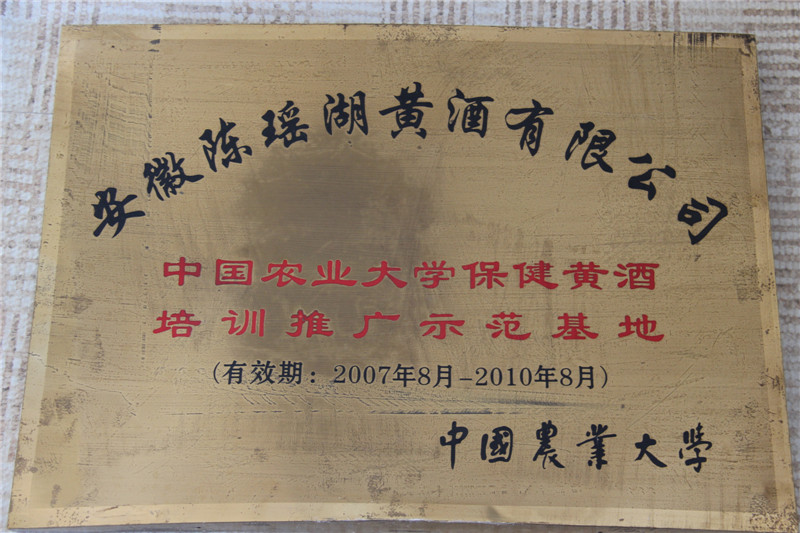 安徽陈瑶湖黄酒有限公司
中国农业大学保健黄酒
培训推广示范基地
(有效期：2007年8月-2010年8月)
中国農業大学